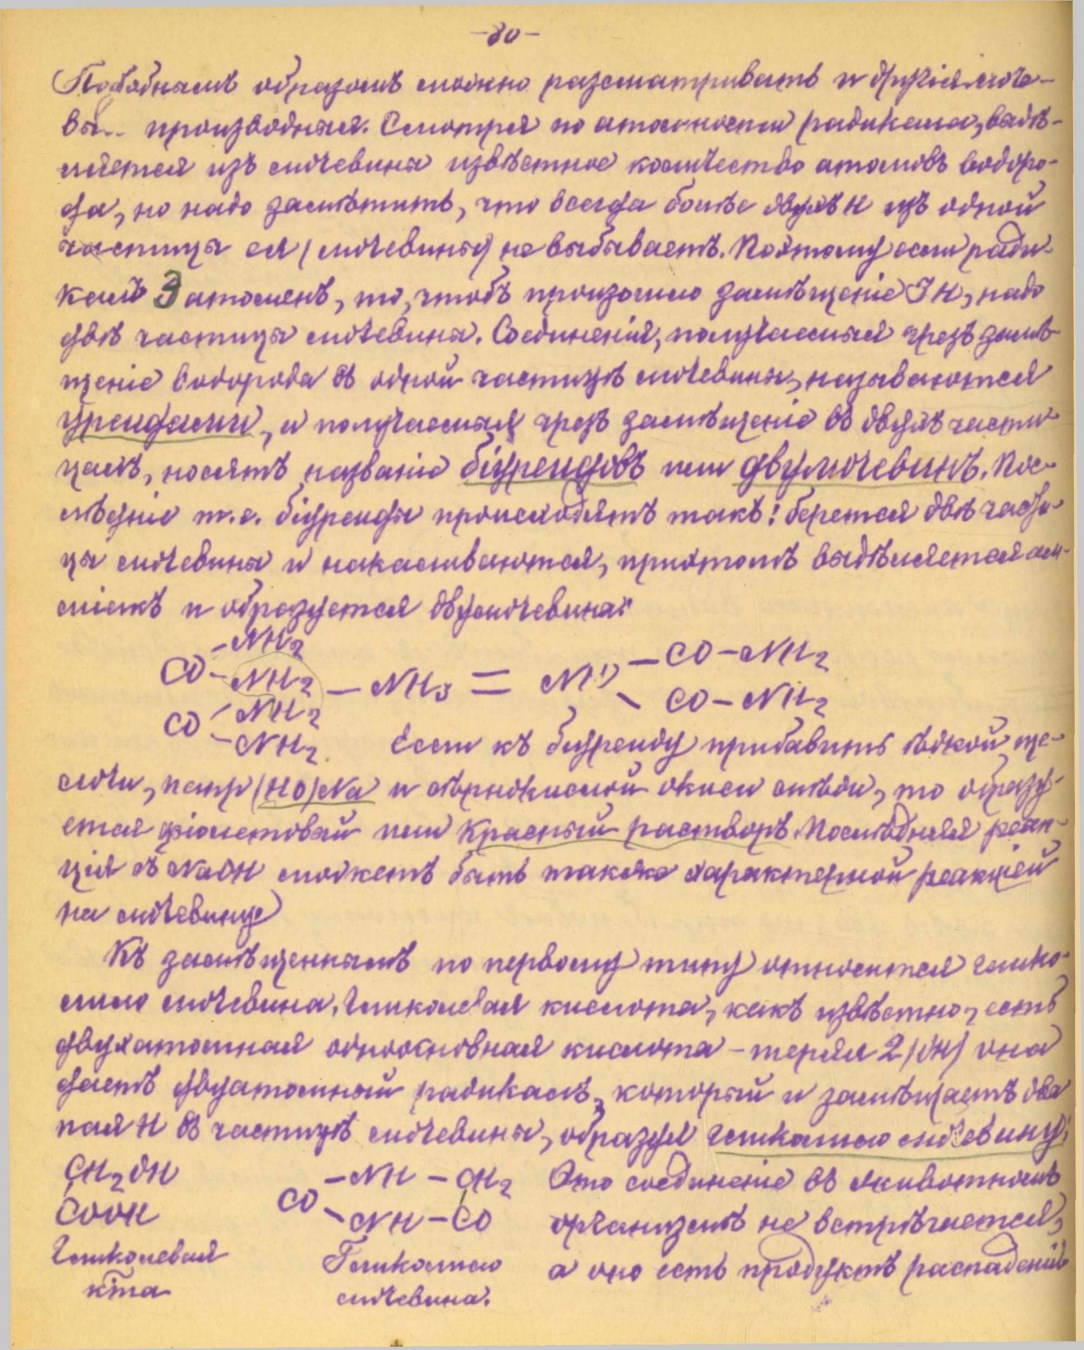 -80-
Подобнымъ образомъ можно разсматривать и другія моче-
вы.. производныя. Смотря по атомности радикала, выдѣ-
ляется изъ мочевины извѣстное количество атомовъ водоро-
да, но надо замѣтить, что всегда болѣе двухъ H изъ одной
частицы ея (мочевины) не выбываетъ. Поэтому если ради-
калъ 3 атоменъ, то, чтобъ произошло замѣщеніе 3H, надо
двѣ частицы мочевины. Соединенія, получаемыя чрезъ замѣ-
щеніе водорода въ одной частицѣ мочевины, называются
уреидами, и получаемыя чрезъ замѣщеніе въ двухъ части-
цахъ, носятъ названіе біуреидовъ или двумочевинъ. Пос-
лѣдніе т.е. біуреиды происходятъ такъ: берется двѣ части-
цы мочевины и накаливаются, притомъ выдѣляется ам-
міакъ и образуется двумочевина:
CO - NH2
- NH2
CO - NH2
- NH2
— NH3 = NH
— CO — NH2
— CO — NH2
Если къ біуреиду прибавить ѣдкой ще-
лочи, напр (HO)Na и сѣрнокислой окиси мѣди, то образу-
ется фіолетовый или красный растворъ. Послѣдняя реак-
ція съ NaOH можетъ быть также характерной реакціей
на мочевину)
Къ замѣщеннымъ по первому типу относится глико-
лило мочевина. Гликолевая кислота, какъ извѣстно, есть
двухатомная одноосновная кислота - теряя 2(OH) она
даетъ двуатомный радикалъ, который и замѣщаетъ два
пая H въ частицѣ мочевины, образуя гликолило мочевину:
CH2OH
COOH
Гликолевая
к̅та
CO
— NH — CH2
— NH — CO
Гликолило
мочевина.
Это соединеніе въ животномъ
организмѣ не встрѣчается,
а оно есть продуктъ распаденія